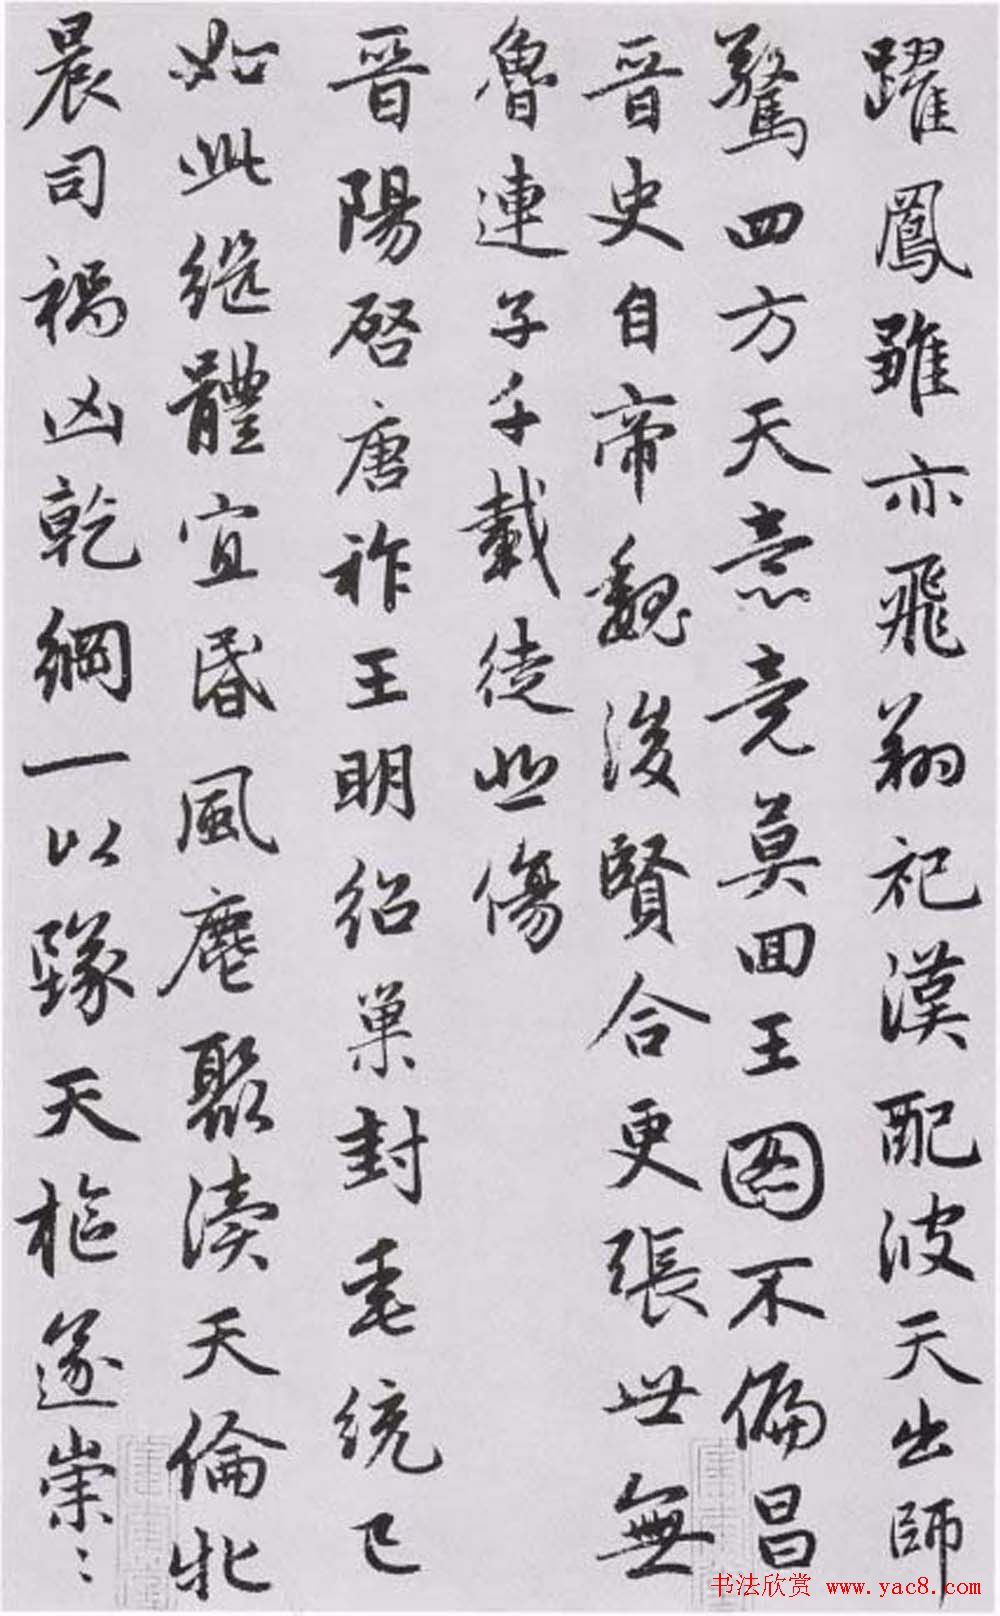 躍鳳雖亦飛翔祀漢配波天出師
驚四方天意竟莫回王图不偏昌
晉史自帝魏後賢合更張世無
魯連子千載徒悲傷
晉陽啓唐祚王明紹巢封垂統已
如此継體宜昏風麀聚瀆天倫牝
晨司禍凶乾綱一以墜天樞遂崇〻
书法欣赏 www.yac8.com